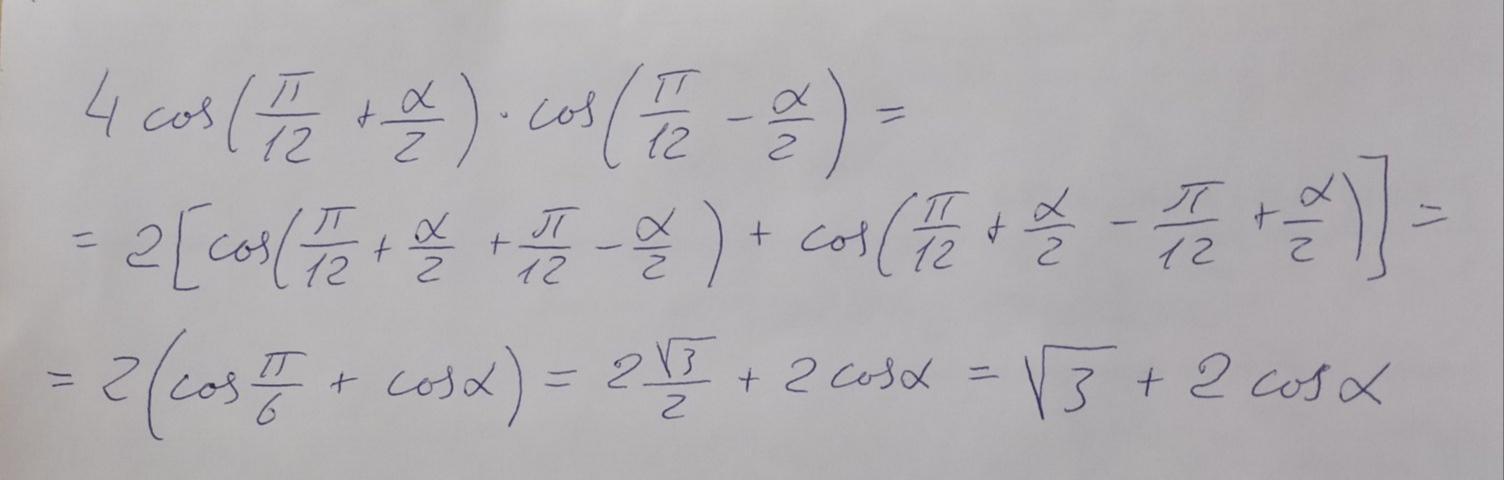 4 cos(π/12 + α/2) · cos(π/12 − α/2) =
= 2[cos(π/12 + α/2 + π/12 − α/2) + cos(π/12 + α/2 − π/12 + α/2)] =
= 2(cos π/6 + cosα) = 2 √3/2 + 2 cosα = √3 + 2 cosα